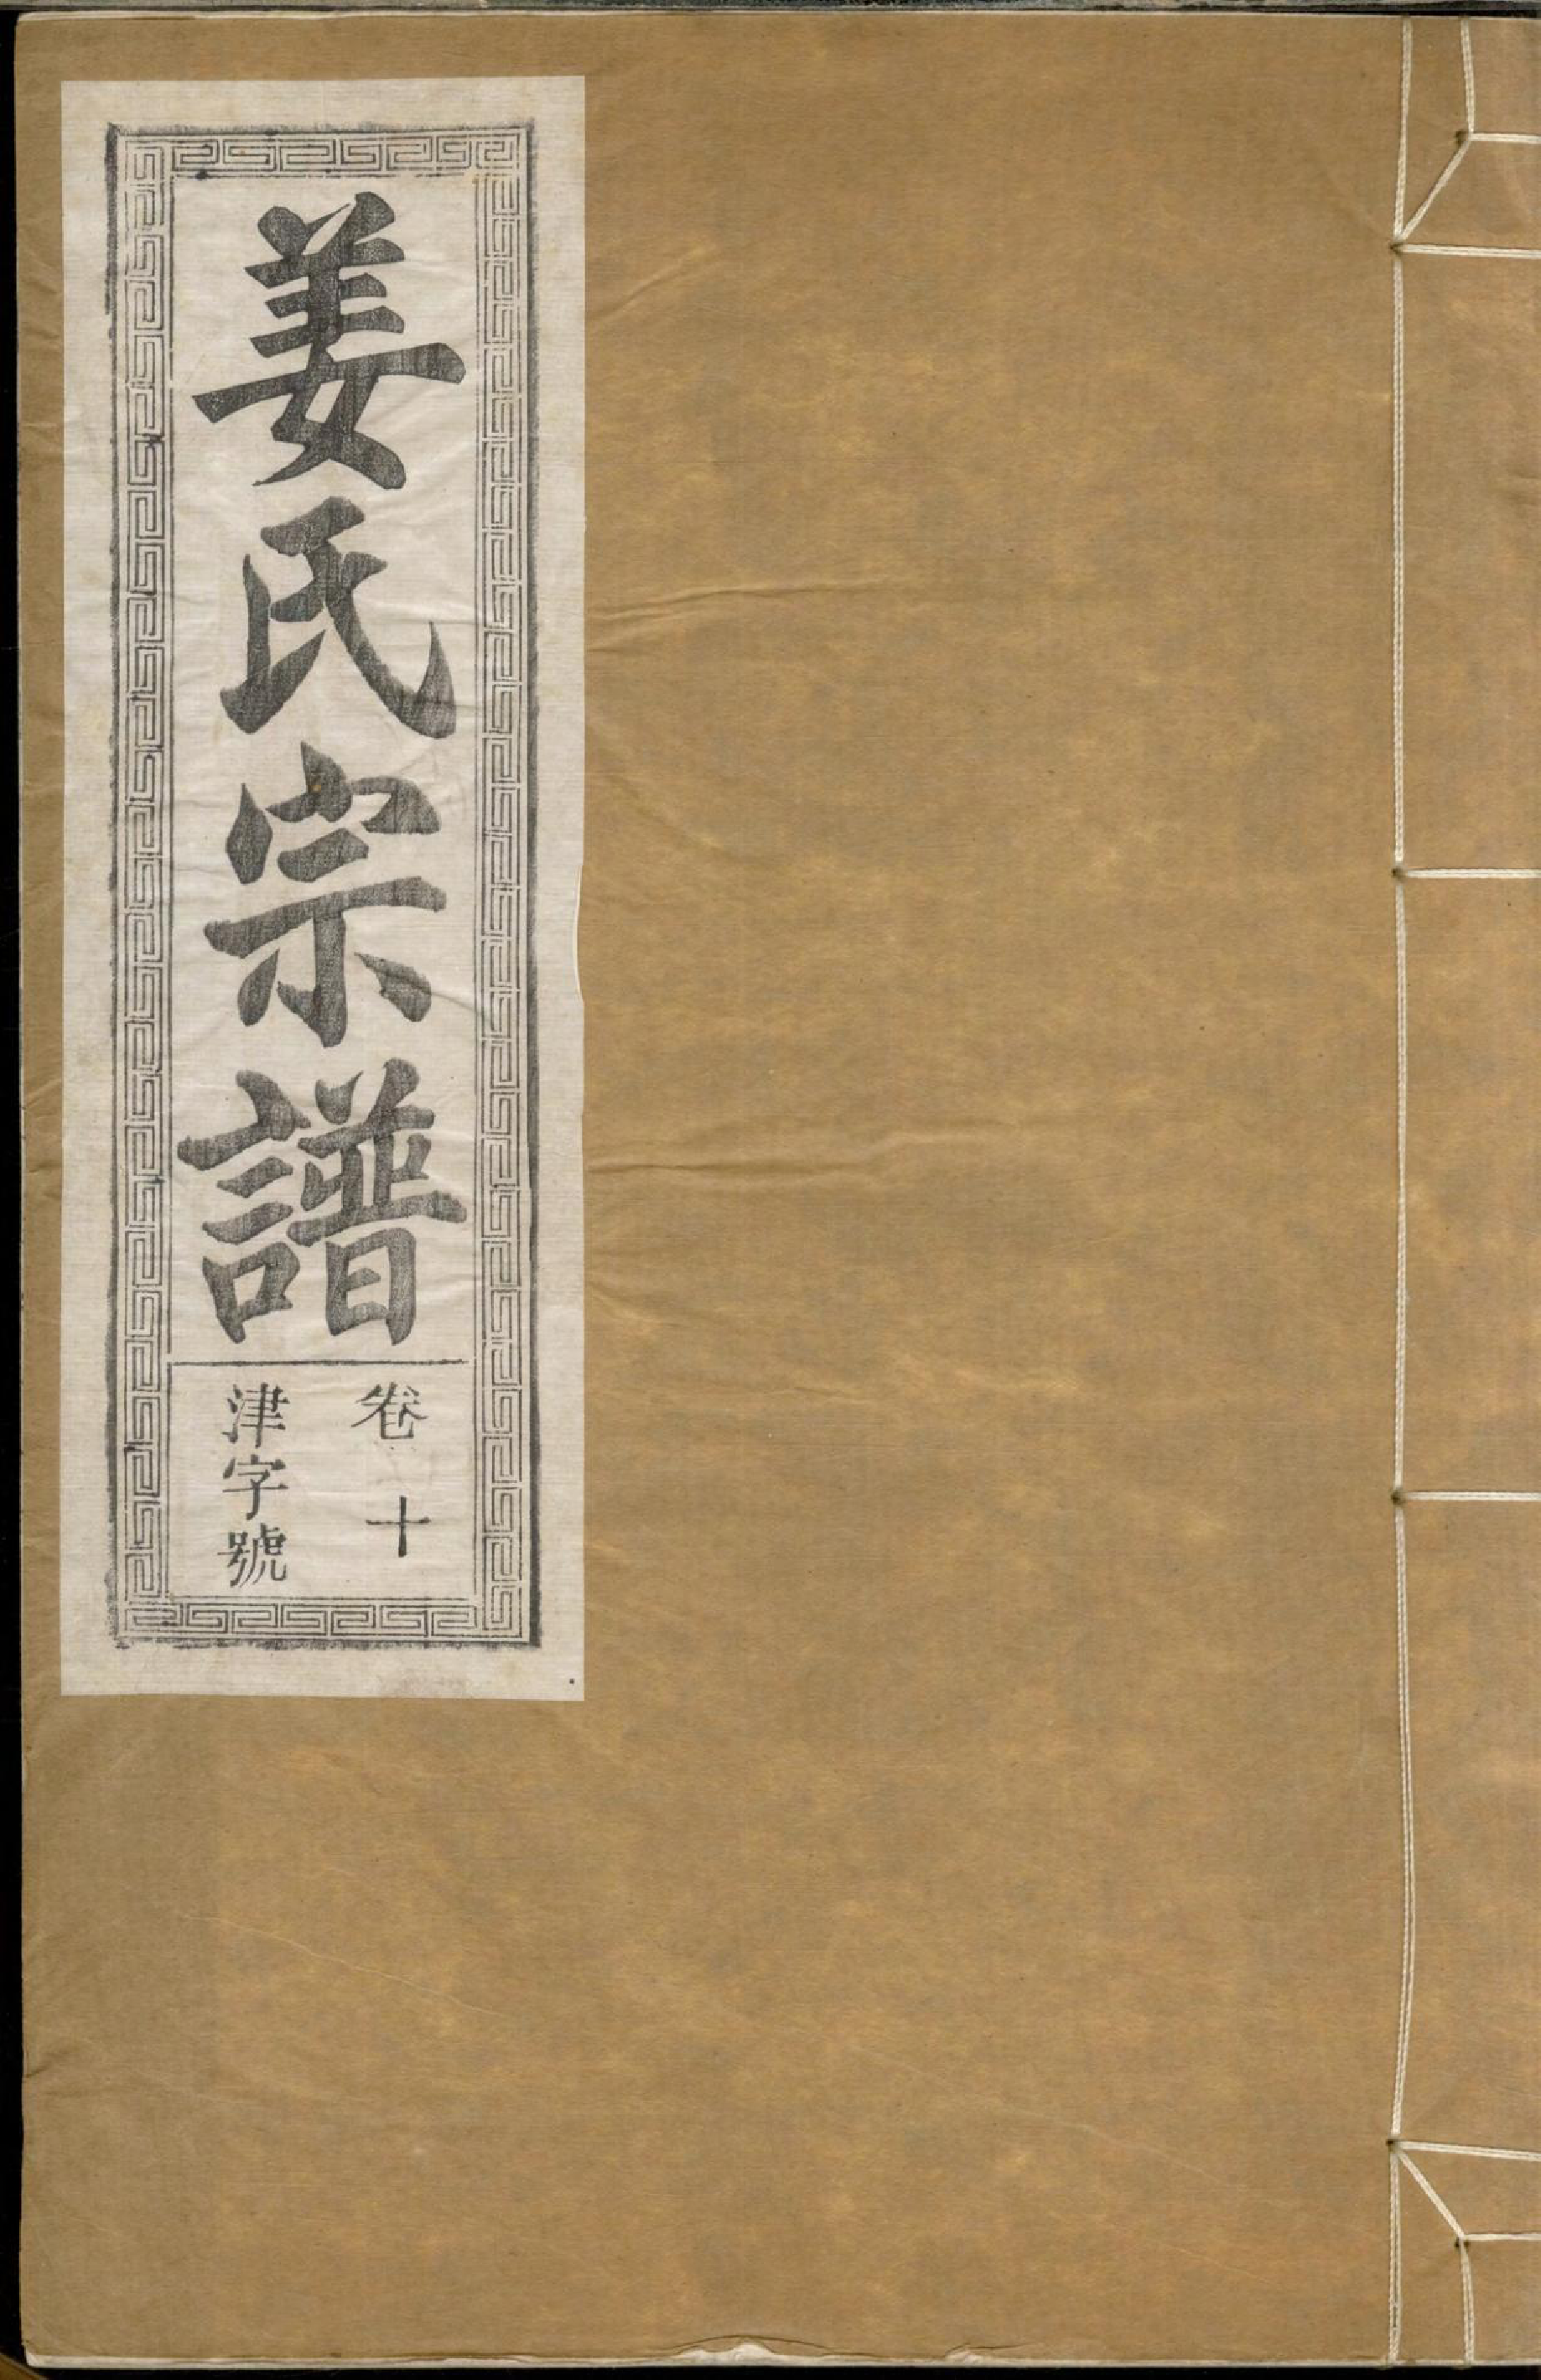 姜氏宗譜
卷十
津字號